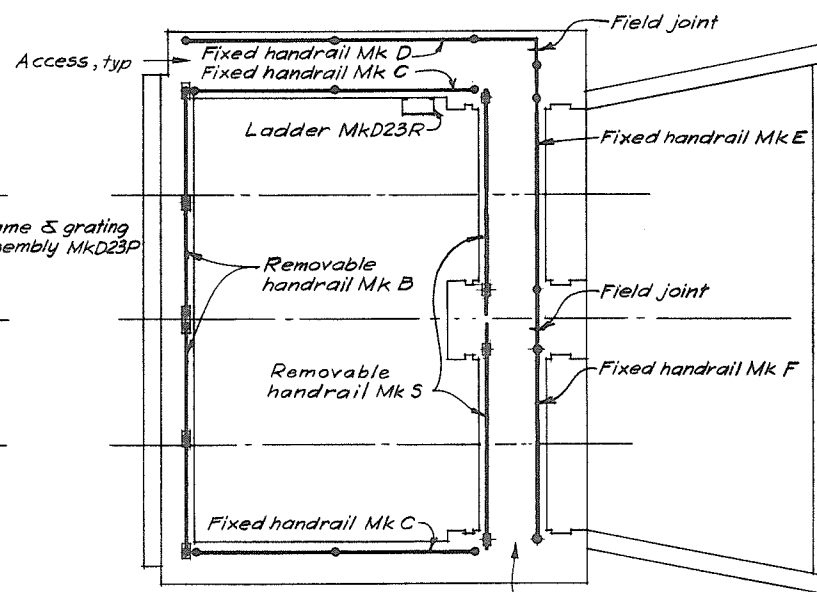 Field joint
Access, typ
Fixed handrail Mk D
Fixed handrail Mk C
Ladder MkD23R
Fixed handrail Mk E
& grating
MkD23P
Removable
handrail Mk B
Field joint
Removable
handrail Mk S
Fixed handrail Mk F
Fixed handrail Mk C